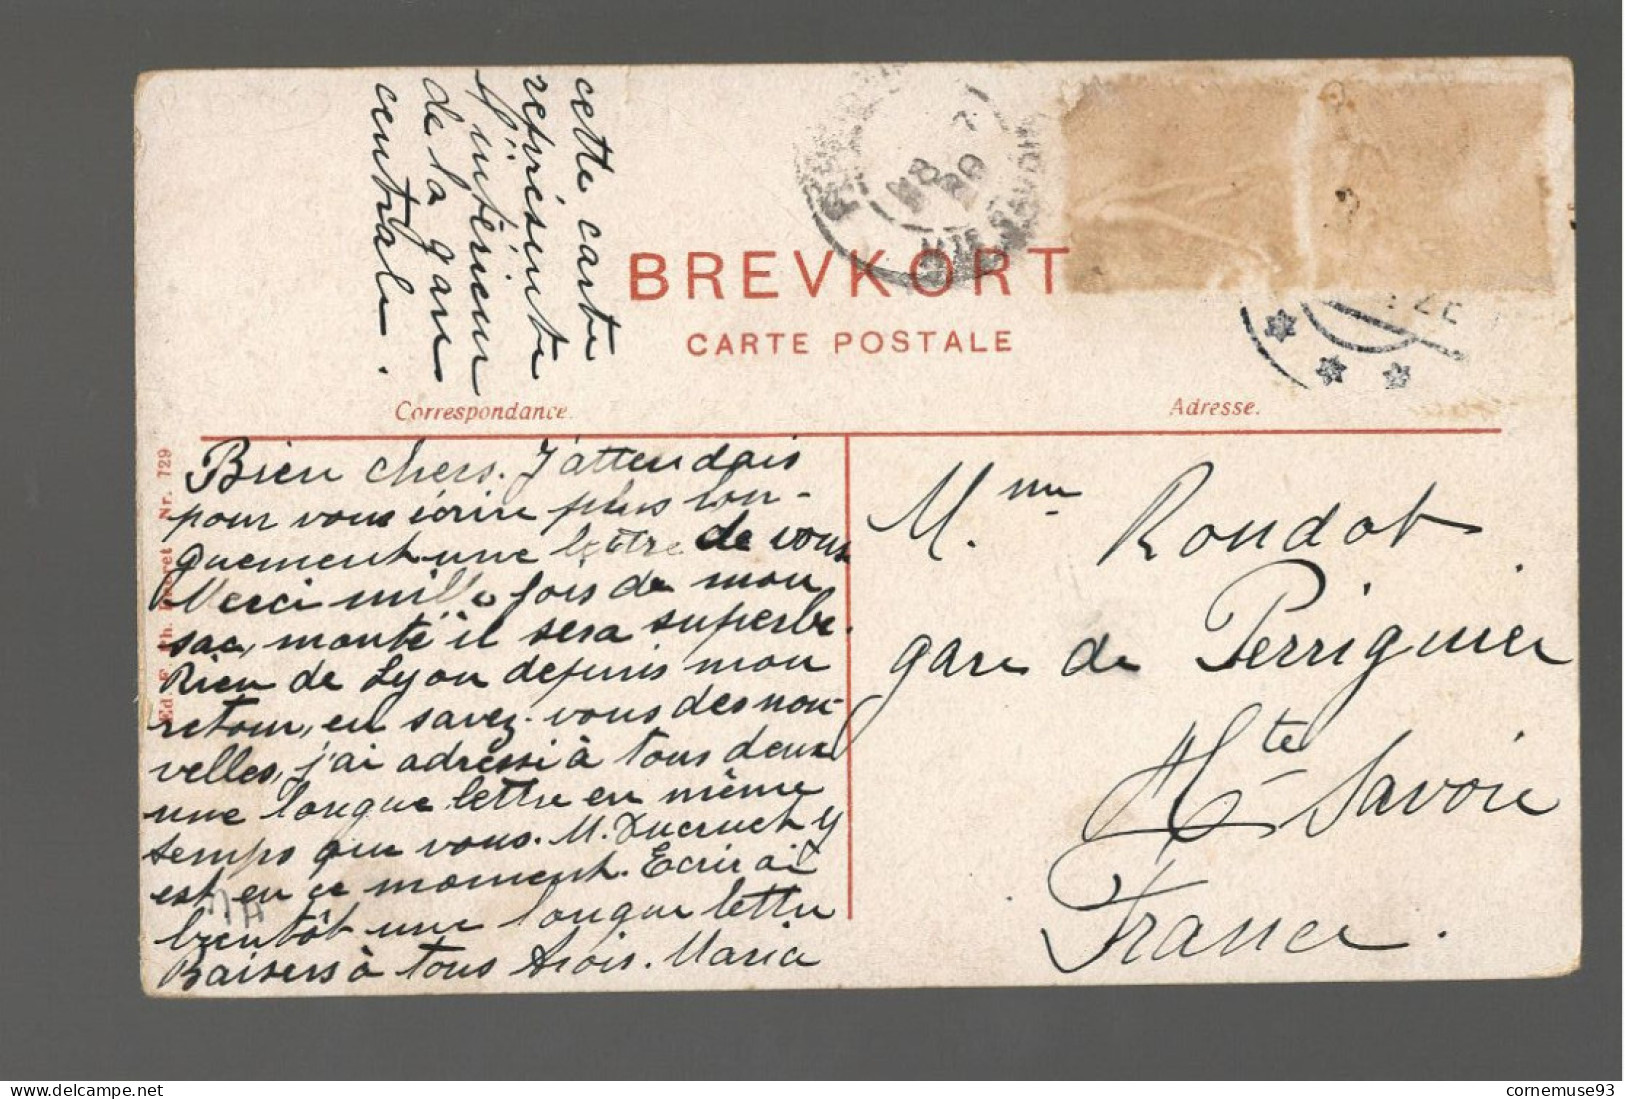 cette carte
représente
l'intérieur
de la gare
centrale.
BREVKORT
CARTE POSTALE
Correspondance.
Adresse.
Nr. 729
Bien chers. J'attendais
pour vous écrire plus lon-
guement une lettre de vous
Merci mille fois de mon
sac, monté il sera superbe.
Rien de Lyon depuis mon
retour, en savez-vous des nou-
velles, j'ai adressé à tous deux
une longue lettre en même
temps que vous. M. Ducruet y
est en ce moment. Ecrirai
bientôt une longue lettre
Baisers à tous trois. Maria
M.me Rondot
gare de Perrignier
Hte Savoie
France.
delcampe.net
cornemuse93